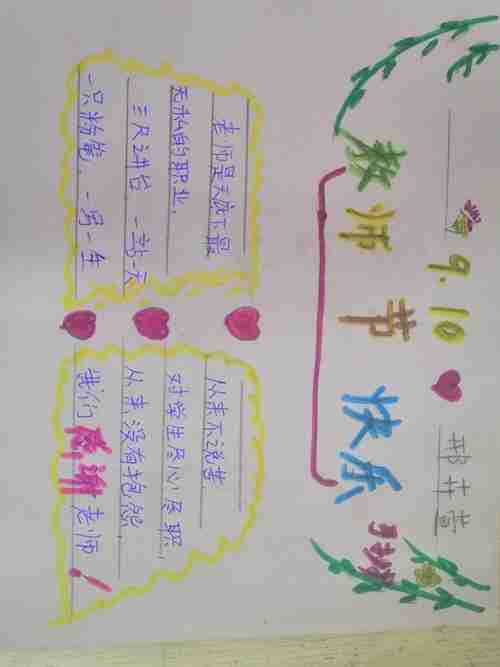 9.10
教师节快乐
老师是天底下最
无私的职业.
三尺讲台 一站一天
一只粉笔. 一写一生
从来不说苦.
对学生尽心尽职
从来没有抱怨.
我们感谢老师!